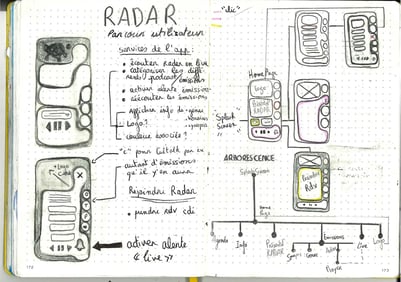 RADAR
Parcours utilisateur
services de l'app:
• écouter Radar en live
• catégoriser les diffé-
rents podcasts/émissions
• activer alerte émission
• réécouter les émissions
Afficher info de
Logo?
couleur associée?
"c" pour
autant d'émissions
qu'il y en aura
Rejoindre Radar
• prendre rdv cdi
activer alerte
« live »
"clic"
Home Page
Logo
Splash
Screen
Prendre
Rdv
ARBORESCENCE
Splash Screen
Home
Page
Agenda
Info
RADAR
Emissions
Live
Logo
Player
172
173